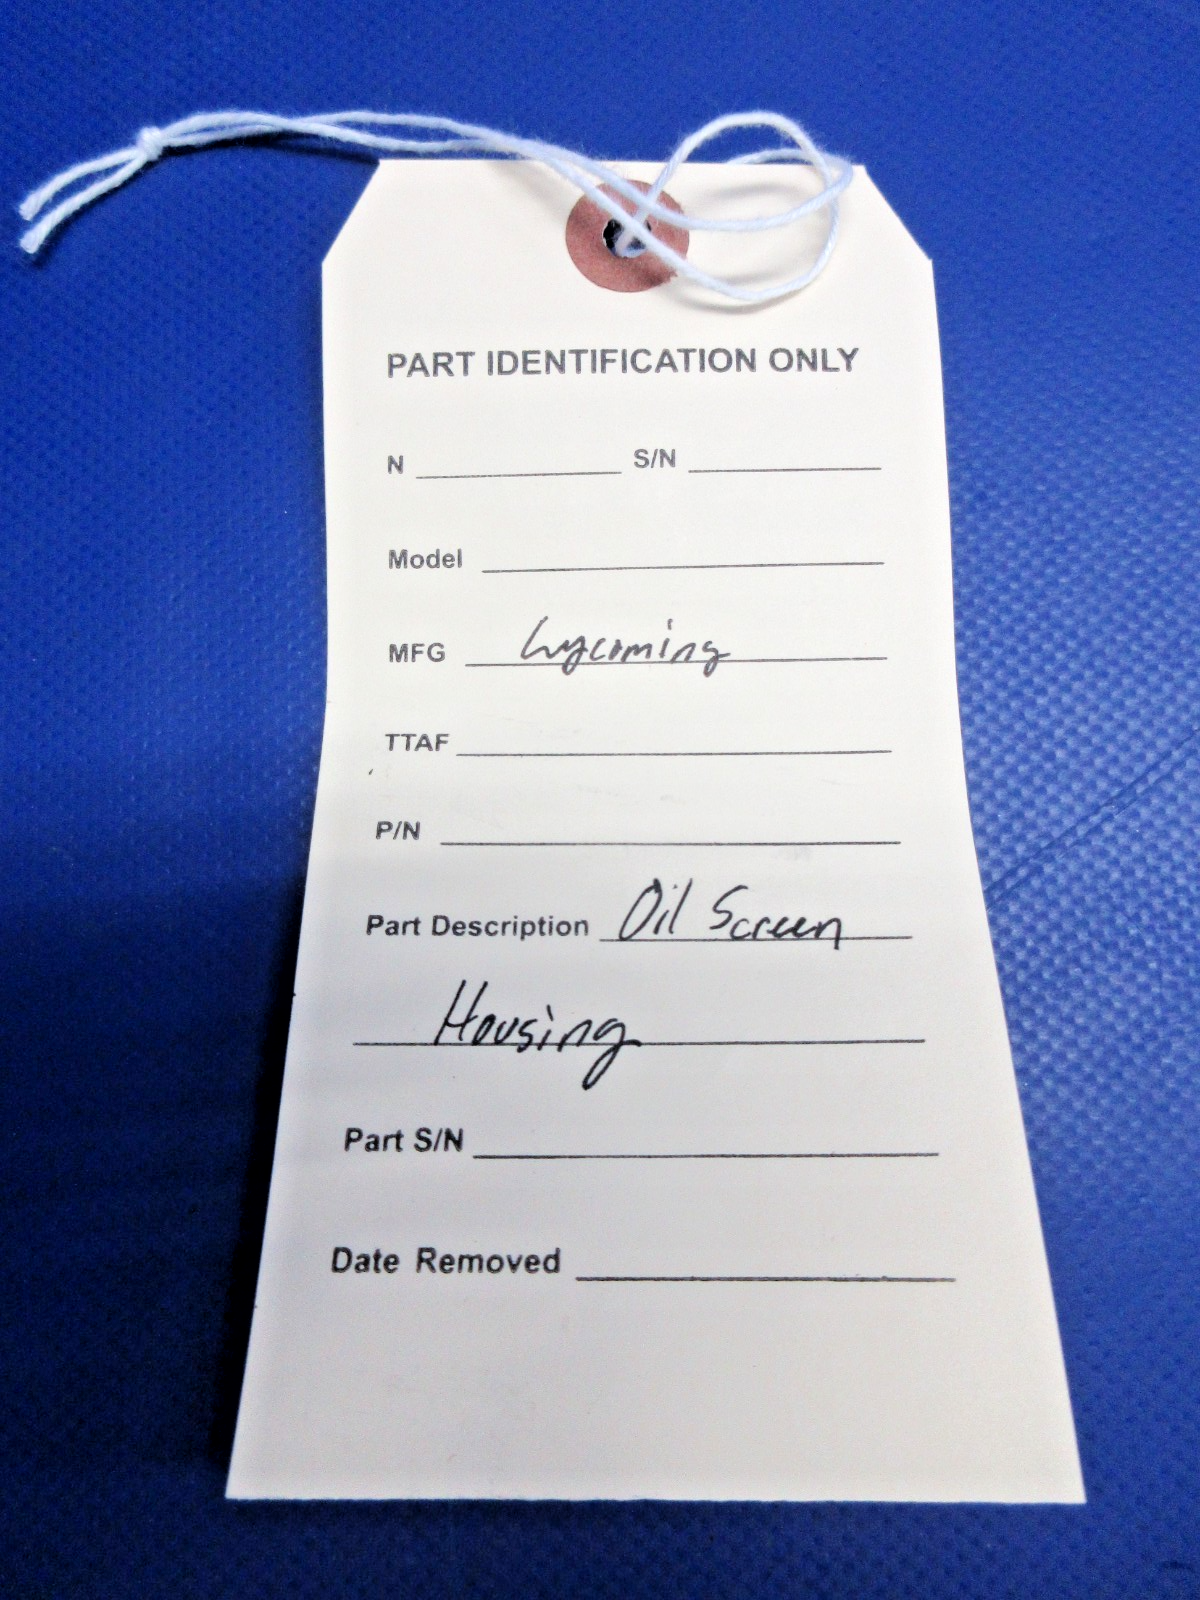 PART IDENTIFICATION ONLY
N S/N
Model
MFG Lycoming
TTAF
P/N
Part Description Oil Screen
Housing
Part S/N
Date Removed